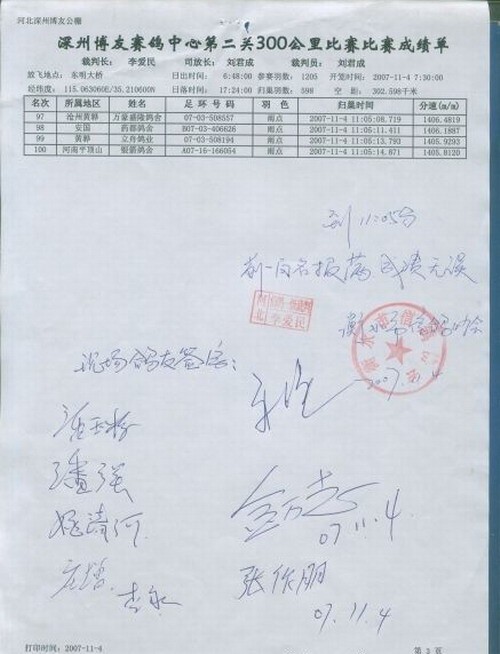 河北深州博友公棚
深州博友赛鸽中心第二关300公里比赛比赛成绩单
裁判长: 李爱民 司放长: 刘君成 裁判员: 刘君成
放飞地点: 东明大桥 日出时间: 6:48:00 参赛羽数: 1205 开笼时间: 2007-11-4 7:30:00
经纬度: 115.063060E/35.210600N 日落时间: 17:24:00 归巢羽数: 598 空 距: 302.598千米
名次 所属地区 姓名 足 环 号 码 羽 色 归巢时间 分速(m/s)
97 沧州黄骅 万豪盛隆鸽舍 07-03-508557 雨点 2007-11-4 11:05:08.719 1406.4819
98 安国 药都鸽舍 B07-03-406626 雨点 2007-11-4 11:05:11.411 1406.1887
99 黄骅 立舟鸽业 07-03-508194 雨点 2007-11-4 11:05:13.793 1405.9293
100 河南平顶山 A07-16-166054 雨点 2007-11-4 11:05:14.871 1405.8120
到 11:05分
前一百名报满 成绩无误
河北 李爱民
2007.11.4
现场鸽友签名:
潘强
07.11.4
张作朋
07.11.4
打印时间: 2007-11-4
第 3 页